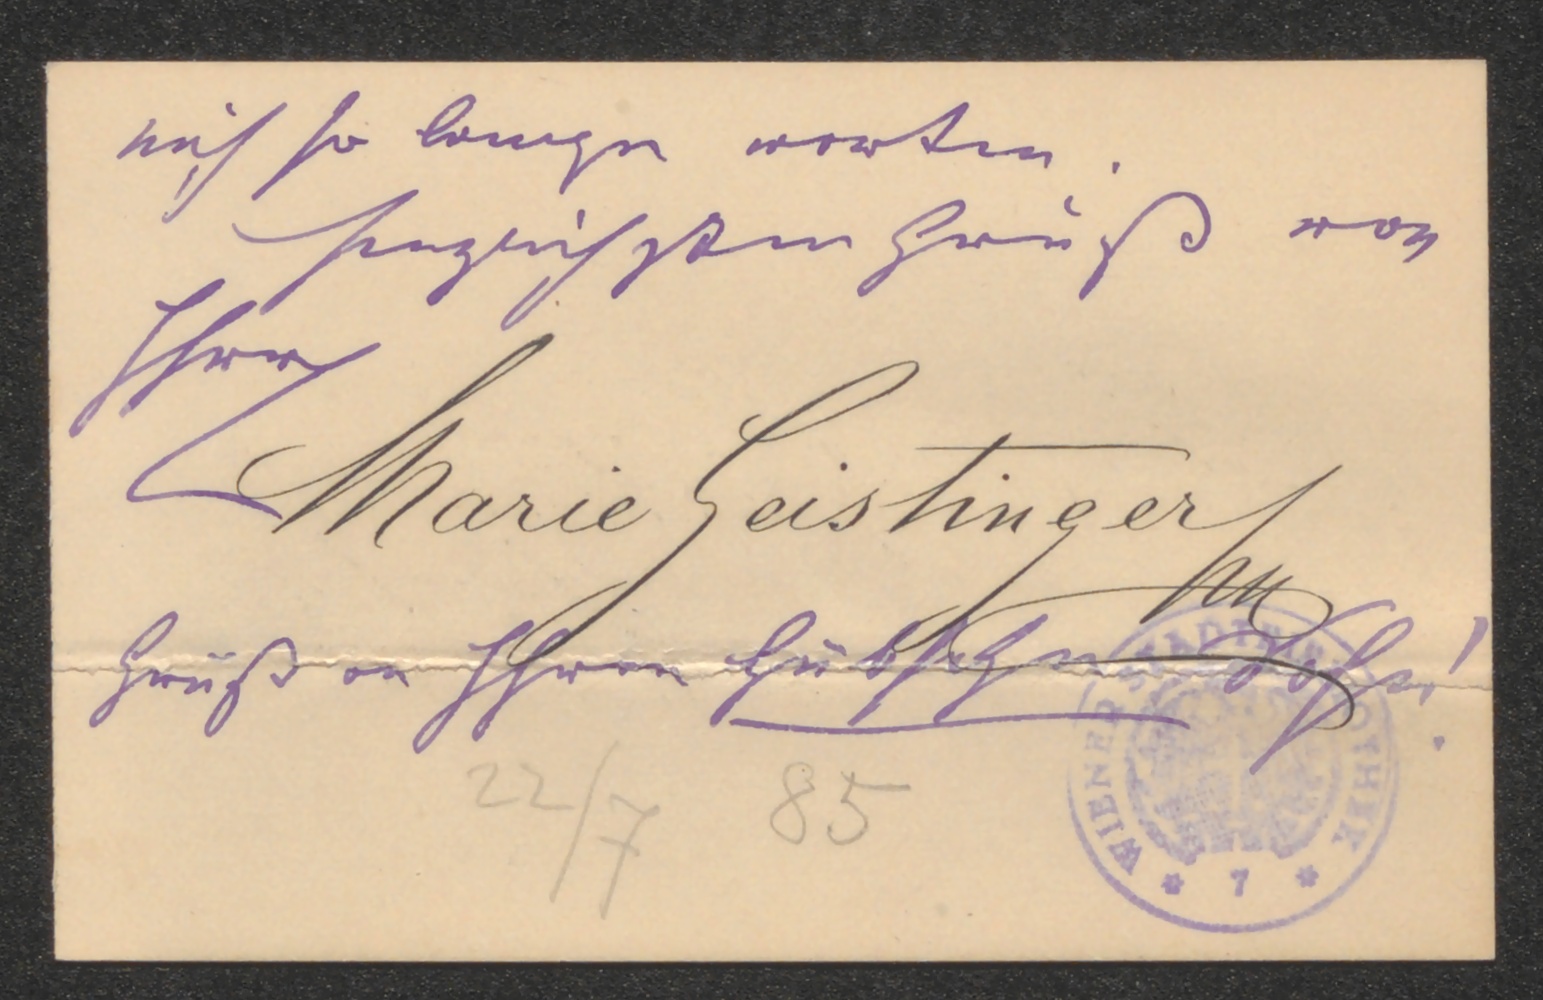 nicht so lange warten.
herzlichsten Gruß von
Ihrer
Marie Geistinger
Gruß an Ihren hübschen Sohn!
22/7 85
WIENER STADTBIBLIOTHEK
* 7 *